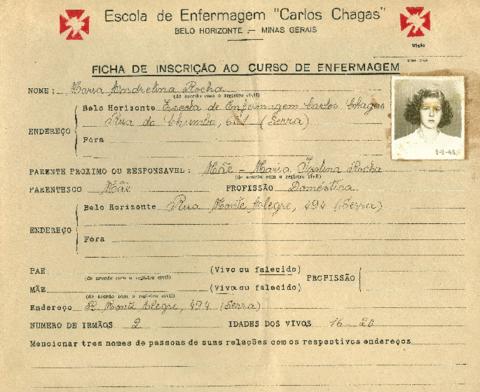 Escola de Enfermagem "Carlos Chagas"
BELO HORIZONTE - MINAS GERAIS
FICHA DE INSCRIÇÃO AO CURSO DE ENFERMAGEM
NOME: Maria Andrelina Rocha
(de acordo com o registro civil)
Belo Horizonte Escola de Enfermagem Carlos Chagas
ENDEREÇO Rua do Chumbo, (Serra)
Fóra
PARENTE PROXIMO OU RESPONSAVEL: Mãe - Maria Rocha
(de acordo com o registro civil)
PARENTESCO Mãe PROFISSÃO Doméstica
Belo Horizonte Rua Monte Alegre, 494 (Serra)
ENDEREÇO
Fóra
PAE (Vivo ou falecido)
(de acordo com o registro civil) PROFISSÃO
MÃE (Viva ou falecida)
(de acordo com o registro civil)
Endereço R. Monte Alegre, 494 (Serra)
NUMERO DE IRMÃOS 2 IDADES DOS VIVOS 16-20
Mencionar tres nomes de pessoas de suas relações com os respectivos endereços